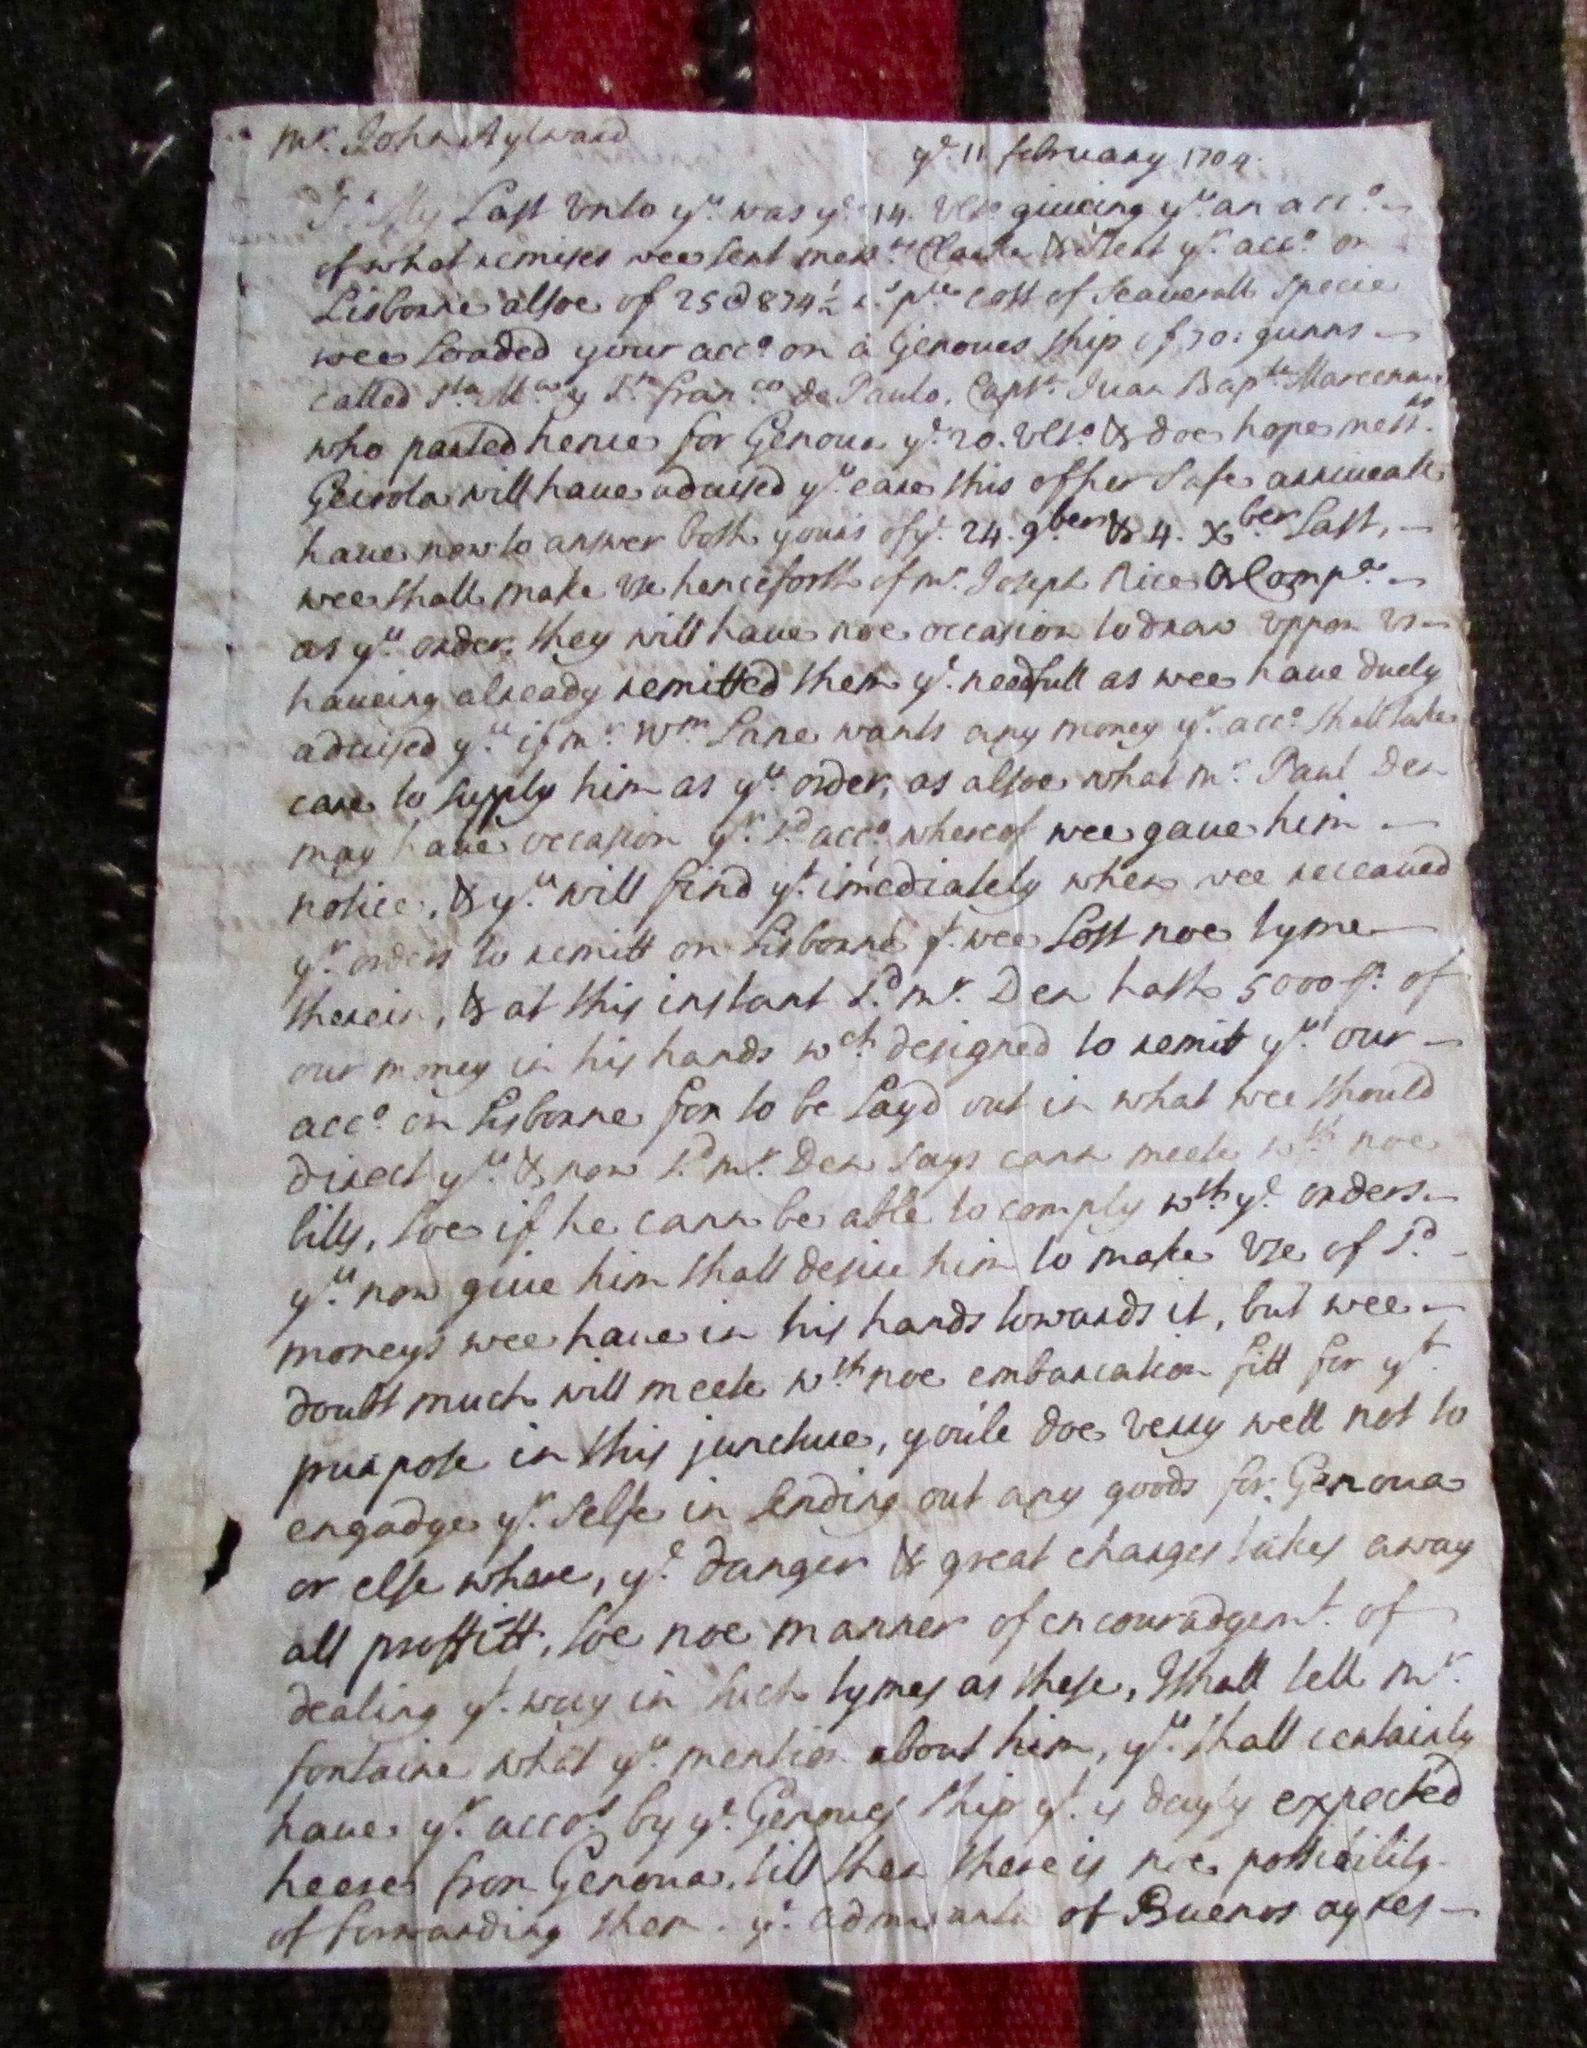 Mr. John Aylward
ye. 11 february 1704.
Sr. My Last unto yu. was ye. 14. ulto. giueing yu. an acco.
of what remises wee sent messrs. & yr. acco. on
Lisborne alsoe of 25 @ 874½ cost of seauerall specie
wee Loaded your acco. on a Genoues ship of 70: gunns
called Sta. Ma. y Sn. franco. de Paulo, Captn. Juan Bapta.
who parted hence for Genoua ye. 20. ulto. & doe hope messrs.
Geirola will haue aduised yu. eare this of her safe arriueall
haue now to answer both yours of ye. 24. 9ber & 4. Xber Last,
wee shall make use henceforth of mr. Joseph Rice & Compa.
as yu. order, they will haue noe occasion to draw uppon us
haueing already remitted them ye. needfull as wee haue duely
aduised yu. if mr. Wm. Lane wants any money yr. acco. shall take
care to supply him as yu. order, as alsoe what mr. Paul Den
may haue occasion yr. sd. acco. whereof wee gaue him
notice, & yu. will find yt. imediately when wee receaued
yr. orders to remitt on Lisborne yt. wee Lost noe tyme
therein, & at this instant sd. mr. Den hath 5000 ps. of
our money in his hands wch. designed to remitt yu. our
acco. on Lisborne for to be Layd out in what wee should
direct yu. & now sd. mr. Den says cann meete wth. noe
bills, soe if he cann be able to comply wth. ye. orders
yu. now giue him shall desire him to make use of sd.
moneys wee haue in his hands towards it, but wee
doubt much will meete wth. noe embarcation fitt for yt.
purpose in this juncture, you'le doe uerry well not to
engadge yr. selfe in sending out any goods for Genoua
or else where, ye. danger & great charges takes away
all proffitt, soe noe manner of encouradgemt. of
dealing yt. way in such tymes as these, I shall tell mr.
fontaine what yu. mention about him, yu. shall certainly
haue yr. accos. by ye. Genoues ship yt. is dayly expected
heere from Genoua, till then there is noe possibility
of forwarding them. ye. of Buenos ayres